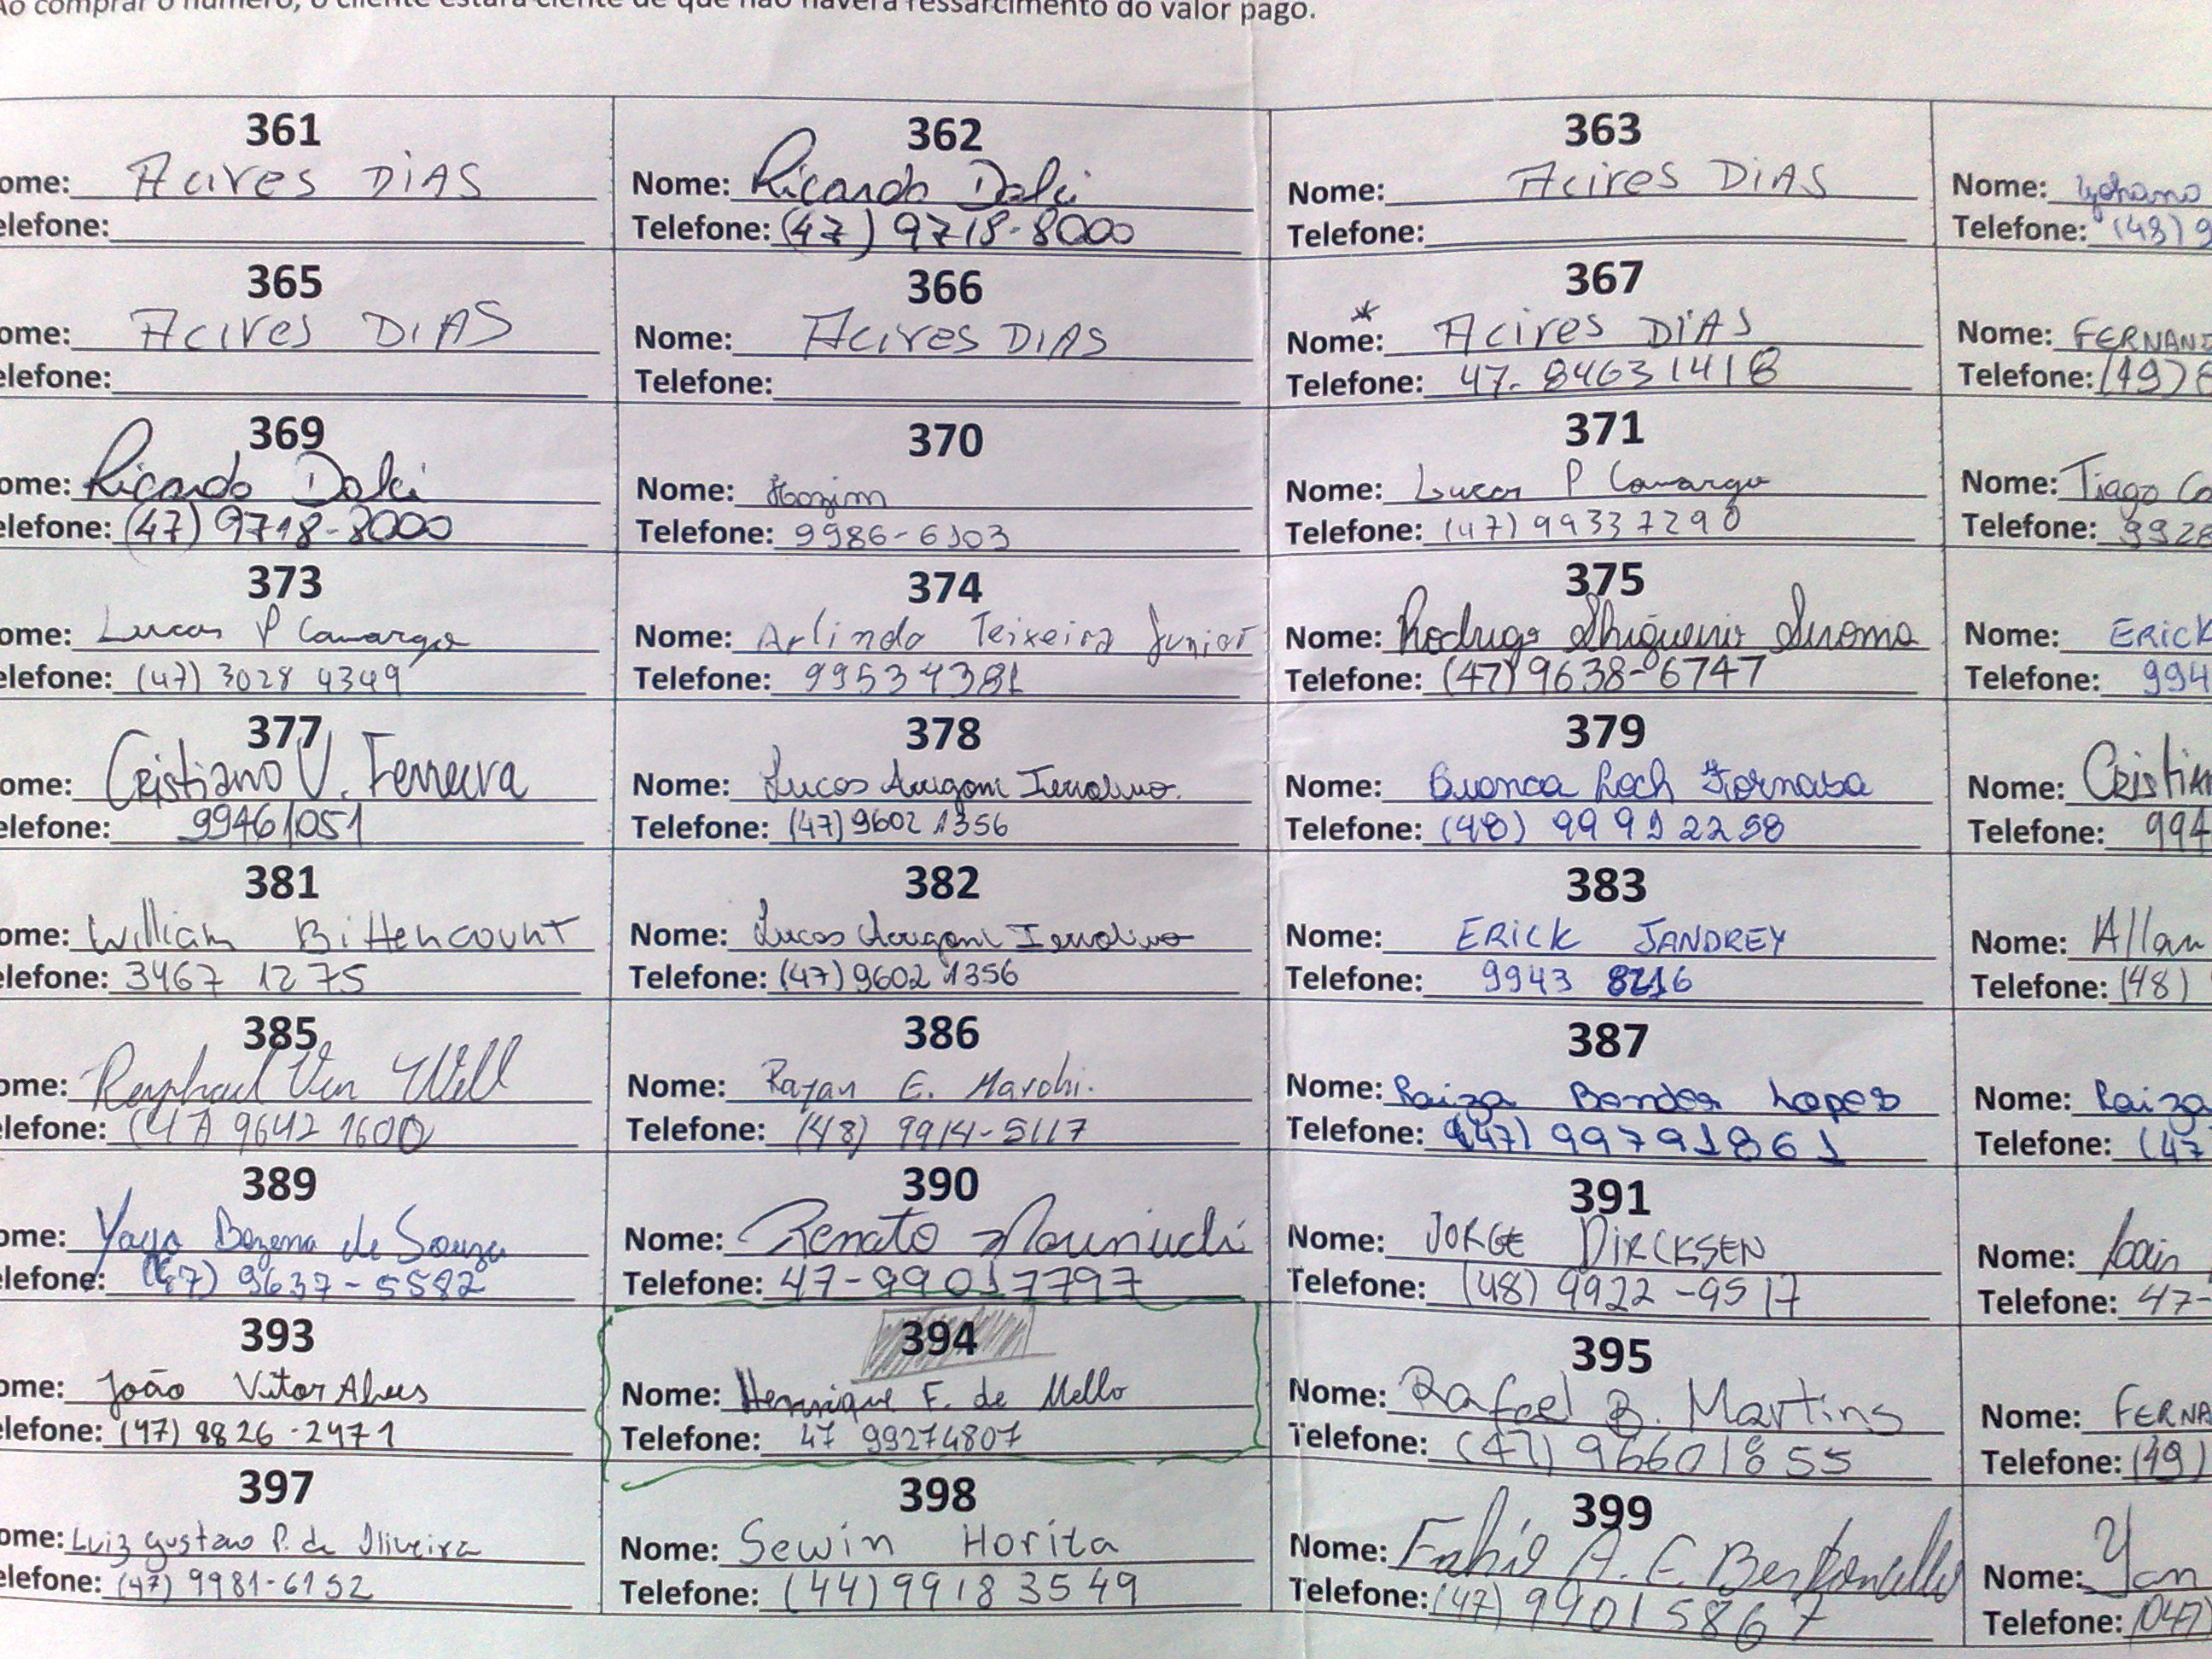 Ao comprar o número, o cliente estará ciente de que não haverá ressarcimento do valor pago.
361 362 363
ome: Acires DiAS Nome: Ricardo Dalci Nome: Acires DiAS Nome:
elefone: Telefone: (47) 9718-8000 Telefone: Telefone: (48) 9
365 366 367
ome: Acires DiAS Nome: Acires DiAS Nome: * Acires DiAS Nome: FERNAND
elefone: Telefone: Telefone: 47-84631418 Telefone: (49) 8
369 370 371
ome: Ricardo Dalci Nome: Nome: Lucas P Camargo Nome: Tiago Co
elefone: (47) 9718-8000 Telefone: 9986-6103 Telefone: (47) 99337290 Telefone: 9928
373 374 375
ome: Lucas P Camargo Nome: Arlindo Teixeira Junior Nome: Rodrigo Nome: ERICK
elefone: (47) 3028 4349 Telefone: 99534381 Telefone: (47) 9638-6747 Telefone: 994
377 378 379
ome: Cristiano V. Ferreira Nome: Lucas Nome: Bianca Nome: Cristian
elefone: 99461051 Telefone: (47) 9602 1356 Telefone: (48) 99912258 Telefone: 994
381 382 383
ome: William Bittencourt Nome: Lucas Nome: ERICK JANDREY Nome: Allan
elefone: 3467 1275 Telefone: (47) 9602 1356 Telefone: 9943 8216 Telefone: (48)
385 386 387
ome: Raphael Von Will Nome: Rayan E. Marchi. Nome: Raiza Lopes Nome: Raiza
elefone: (47) 9642 1600 Telefone: (48) 9914-5117 Telefone: (47) 99791861 Telefone: (47
389 390 391
ome: Yago de Souza Nome: Renato Nome: JORGE DIRCKSEN Nome:
elefone: (47) 9637-5582 Telefone: 47-99017797 Telefone: (48) 9922-9517 Telefone: 47-
393 394 395
ome: João Vitor Alves Nome: Henrique F. de Mello Nome: Rafael B. Martins Nome: FERNA
elefone: (47) 8826-2471 Telefone: 47 99274807 Telefone: (47) 96601855 Telefone: (49)
397 398 399
ome: Luiz Gustavo P. de Oliveira Nome: Sewin Horita Nome: Fabio A. F. Bertoncello Nome: Yan
elefone: (47) 9981-6152 Telefone: (44) 9918 3549 Telefone: (47) 99015867 Telefone: (047)